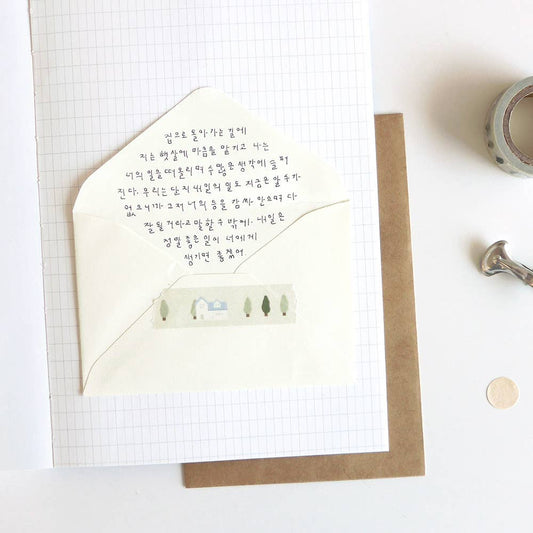 집으로 돌아가는 길에
지는 햇살에 마음을 맡기고 나는
너의 일을 떠올리며 수많은 생각에 슬퍼
진다. 우리는 단지 내일의 일도 지금은 알 수가
없으니까. 그저 너의 등을 감싸 안으며 다
잘될 거라고 말할 수 밖에. 내일은
정말 좋은 일이 너에게
생기면 좋겠어